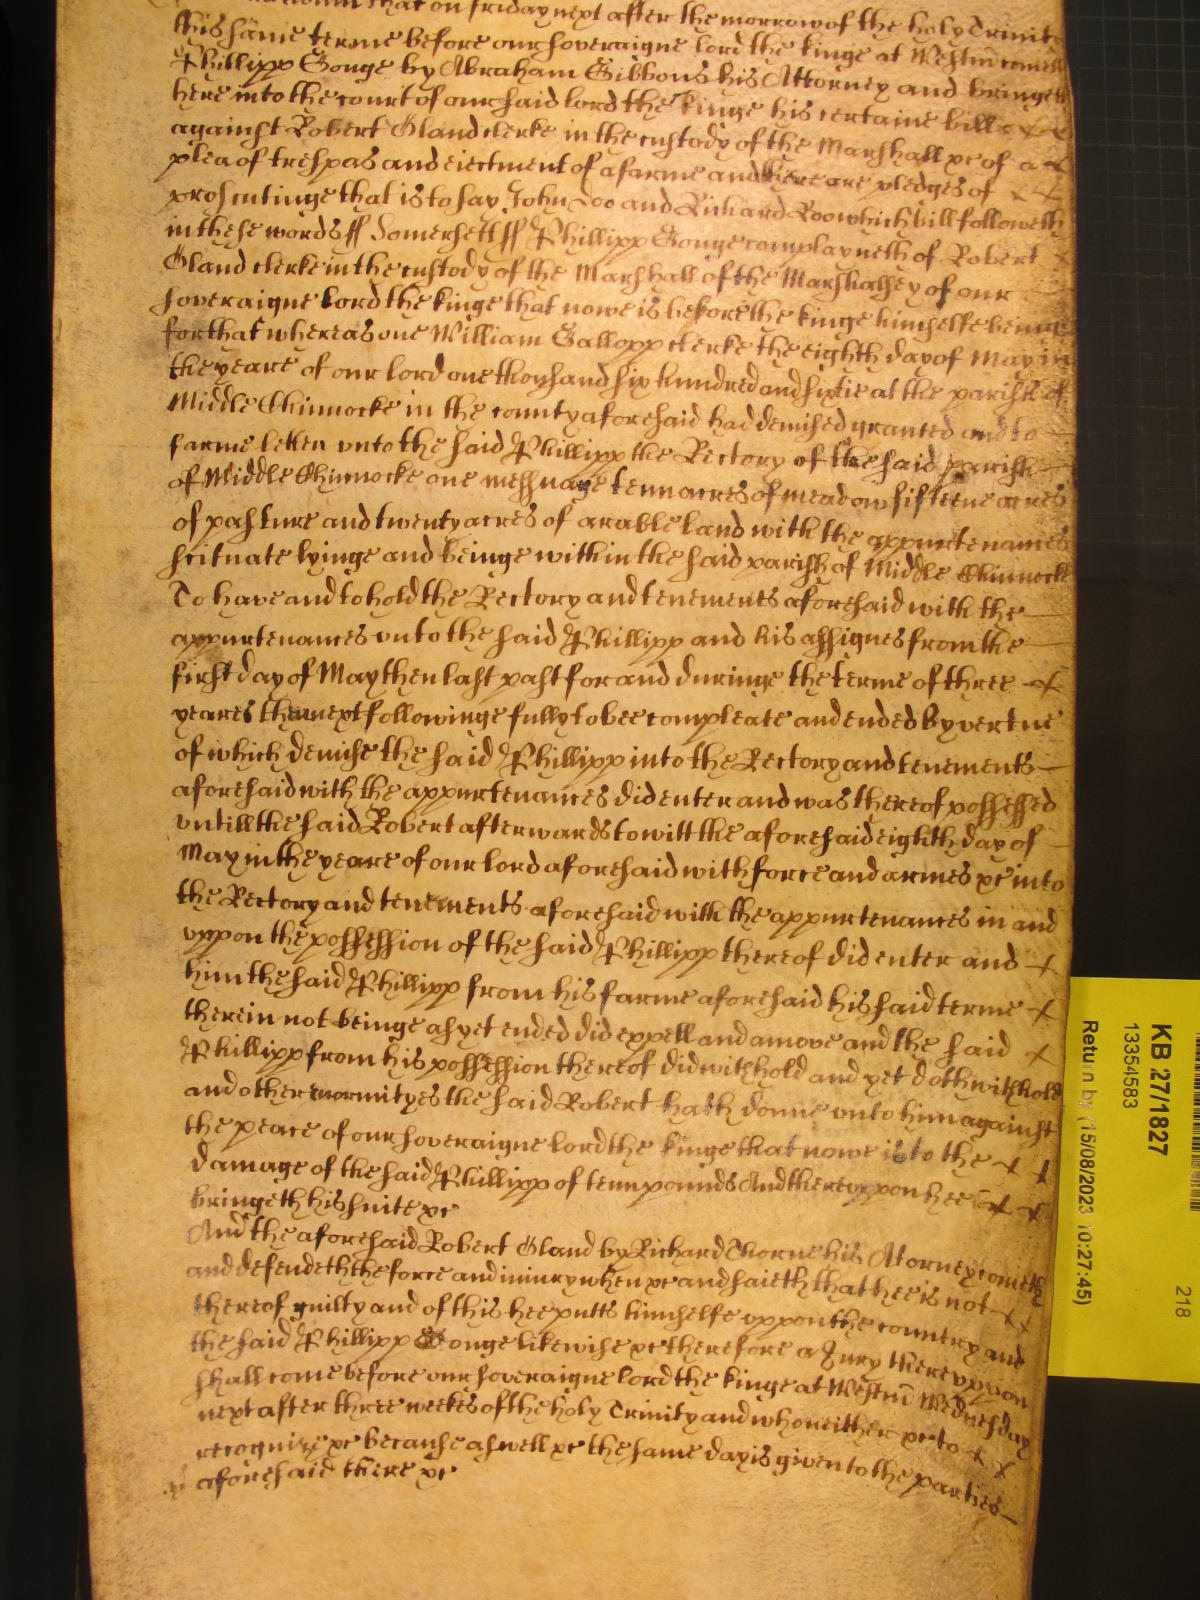 that on friday next after the morrow of the holy Trinity
this same terme before our soveraigne lord the kinge at Westm̄ cometh
Phillipp Gouge by Abraham Gibbons his Attorney and bringeth
here into the court of our said lord the kinge his certaine bill
against Robert Gland clerke in the custody of the Marshall &c of a
plea of trespas and eiectment of a farme and there are pledges of
prosecutinge that is to say John Doo and Richard Roo which bill followeth
in these words ss Somersett ss Phillipp Gouge complayneth of Robert
Gland clerke in the custody of the Marshall of the Marshalsey of our
soveraigne lord the kinge that nowe is before the kinge himselfe beinge
for that whereas one William Gallopp clerke the eighth day of May in
the yeare of our lord one thousand six hundred and sixtie at the parish of
Middle Chinnocke in the county aforesaid had demised granted and to
farme letten vnto the said Phillipp the Rectory of the said parish
of Middle Chinnocke one messuage tenn acres of meadow fifteene acres
of pasture and twenty acres of arable land with the appurtenances
scituate lyinge and beinge within the said parish of Middle Chinnocke
To have and to hold the Rectory and tenements aforesaid with the
appurtenances vnto the said Phillipp and his assignes from the
first day of May then last past for and duringe the terme of three
yeares then next followinge fully to bee compleate and ended by vertue
of which demise the said Phillipp into the Rectory and tenements
aforesaid with the appurtenances did enter and was thereof possessed
vntill the said Robert afterwards to witt the aforesaid eighth day of
May in the yeare of our lord aforesaid with force and armes &c into
the Rectory and tenements aforesaid with the appurtenances in and
vppon the possession of the said Phillipp thereof did enter and
him the said Phillipp from his farme aforesaid his said terme
therein not beinge as yet ended did expell and amove and the said
Phillipp from his possession thereof did withhold and yet doth withhold
and other enormityes the said Robert hath donne vnto him against
the peace of our soveraigne lord the kinge that nowe is to the
damage of the said Phillipp of tenn pounds And therevppon hee
bringeth his suite &c
And the aforesaid Robert Gland by Richard Thorne his Atorney cometh
and defendeth the force and iniury when &c and saieth that hee is not
thereof guilty and of this hee putts himselfe vppon the country and
the said Phillipp Gouge likewise &c therefore a Jury therevppon
shall come before our soveraigne lord the kinge at Westm̄ Wednesday
next after three weekes of the holy Trinity and who neither &c to
recognize &c because aswell &c the same day is given to the parties
aforesaid there &c
KB 27/1827
13354583
218
Return by (15/08/2023 10:27:45)